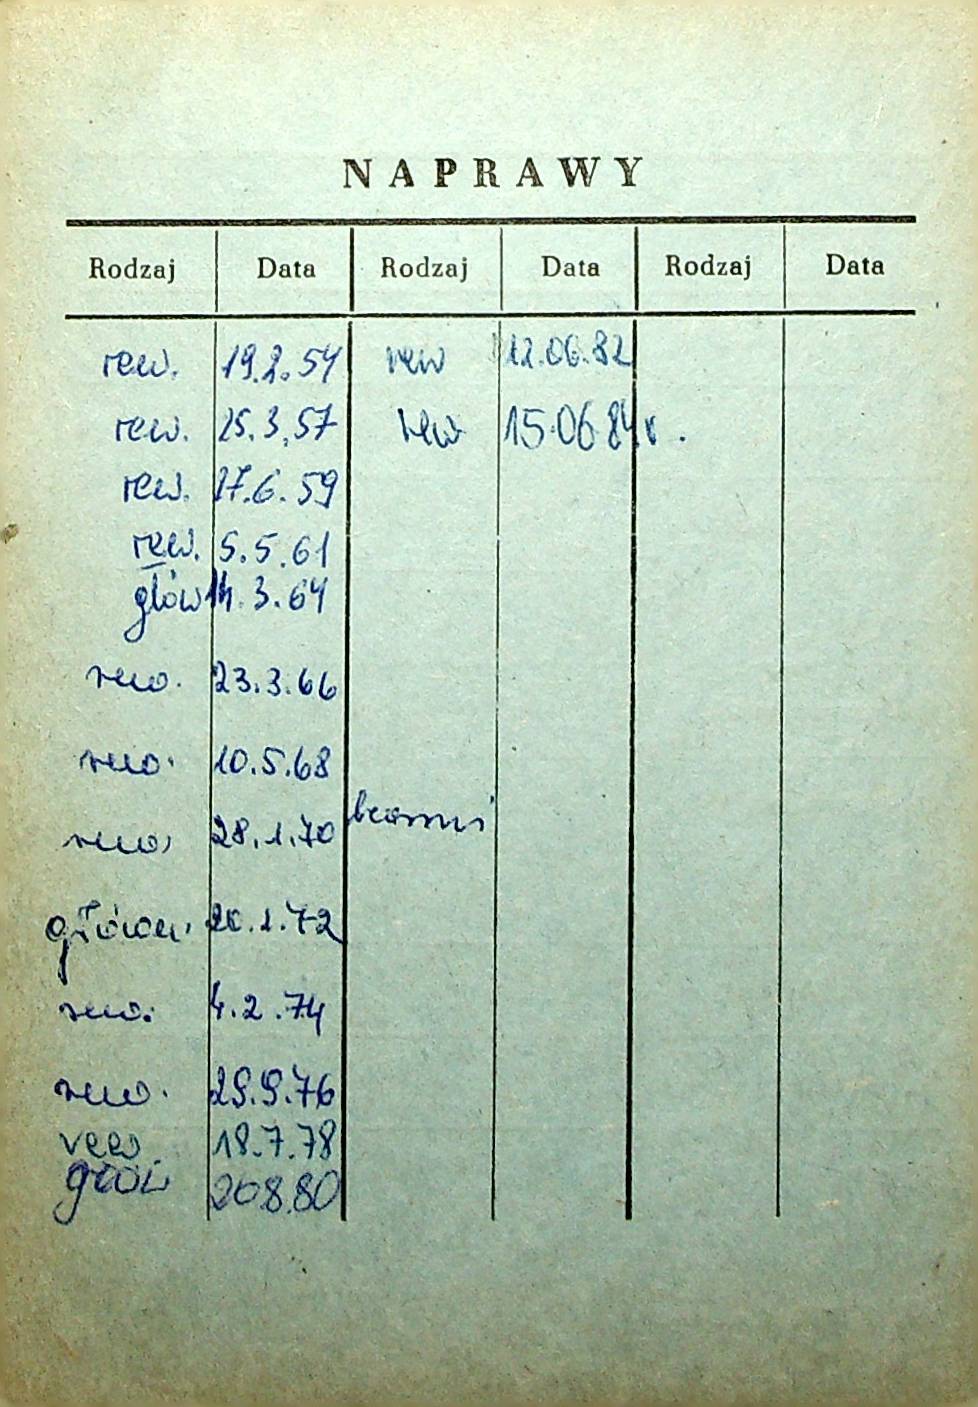 NAPRAWY
Rodzaj Data Rodzaj Data Rodzaj Data
rew. 19.2.54 rew 12.06.82
rew. 25.3.57 rew 15.06.84r.
rew. 17.6.59
rew. 5.5.61
głów 14.3.64
rew. 23.3.66
rew. 10.5.68
rew. 28.1.70
główn. 20.1.72
rew. 4.2.74
rew. 29.9.76
rew 18.7.78
głów 20 8.80